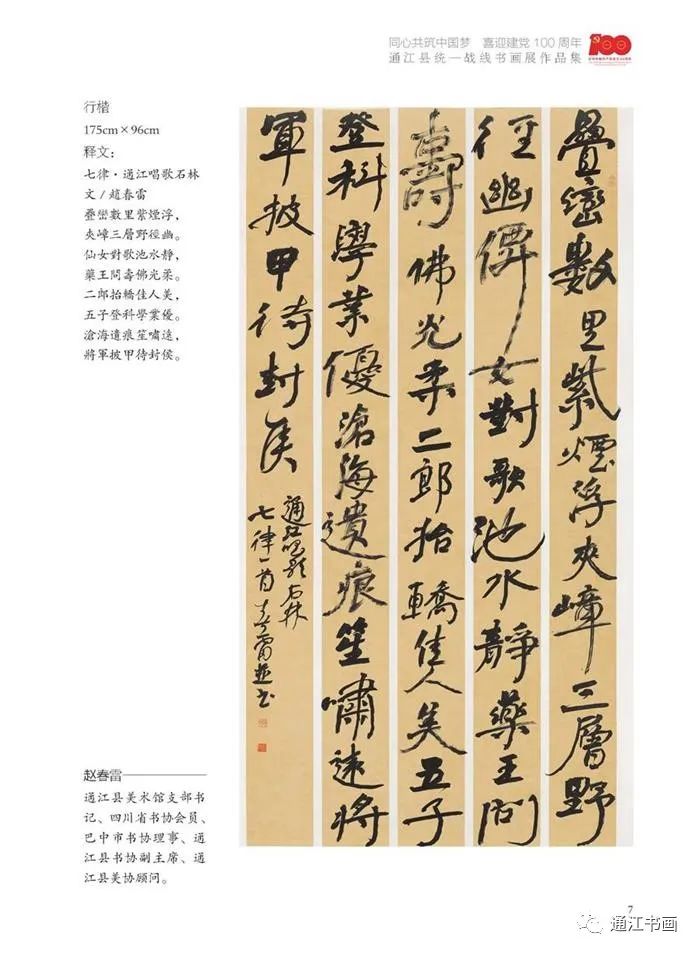 同心共筑中国梦　喜迎建党 100 周年
通江县统一战线书画展作品集
100
行楷
175cm×96cm
释文：
七律·通江唱歌石林
文 / 趙春雷
疊巒數里紫煙浮，
夾嶂三層野徑幽。
仙女對歌池水靜，
藥王問壽佛光柔。
二郎抬轎佳人美，
五子登科學業優。
滄海遺痕笙嘯遠，
將軍披甲待封侯。
疊巒數里紫煙浮夾嶂三層野
徑幽僊女對歌池水靜藥王問
壽佛光柔二郎抬轎佳人美五子
登科學業優滄海遺痕笙嘯遠將
軍披甲待封侯
通江唱歌石林
七律一首春雷並书
赵春雷
通江县美术馆支部书
记、四川省书协会员、
巴中市书协理事、通
江县书协副主席、通
江县美协顾问。
7
通江书画